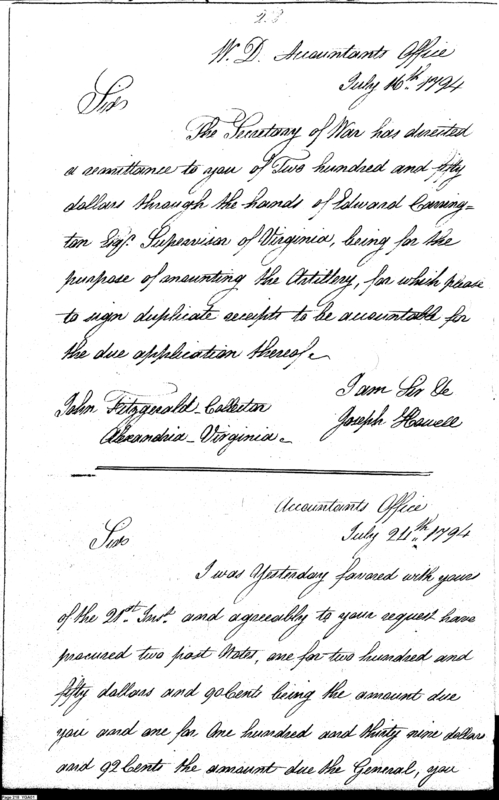 23
W. D. Accountants Office
July 16th 1794
Sir
The Secretary of War has directed
a remittance to you of Two hundred and fifty
dollars through the hands of Edward Carring=
ton Esqr. Supervisor of Virginia, being for the
purpose of mounting the Artillery, for which please
to sign duplicate receipts to be accountable for
the due application thereof.
I am Sir &c
John Fitzgerald Collector
Joseph Howell
Alexandria Virginia.
Accountants Office
July 24th 1794
Sir
I was Yesterday favored with yours
of the 21st. Inst. and agreeably to your request have
procured two post Notes, one for two hundred and
fifty dollars and 90 Cents being the amount due
you and one for One hundred and thirty nine dollars
and 92 Cents the amount due the General, you